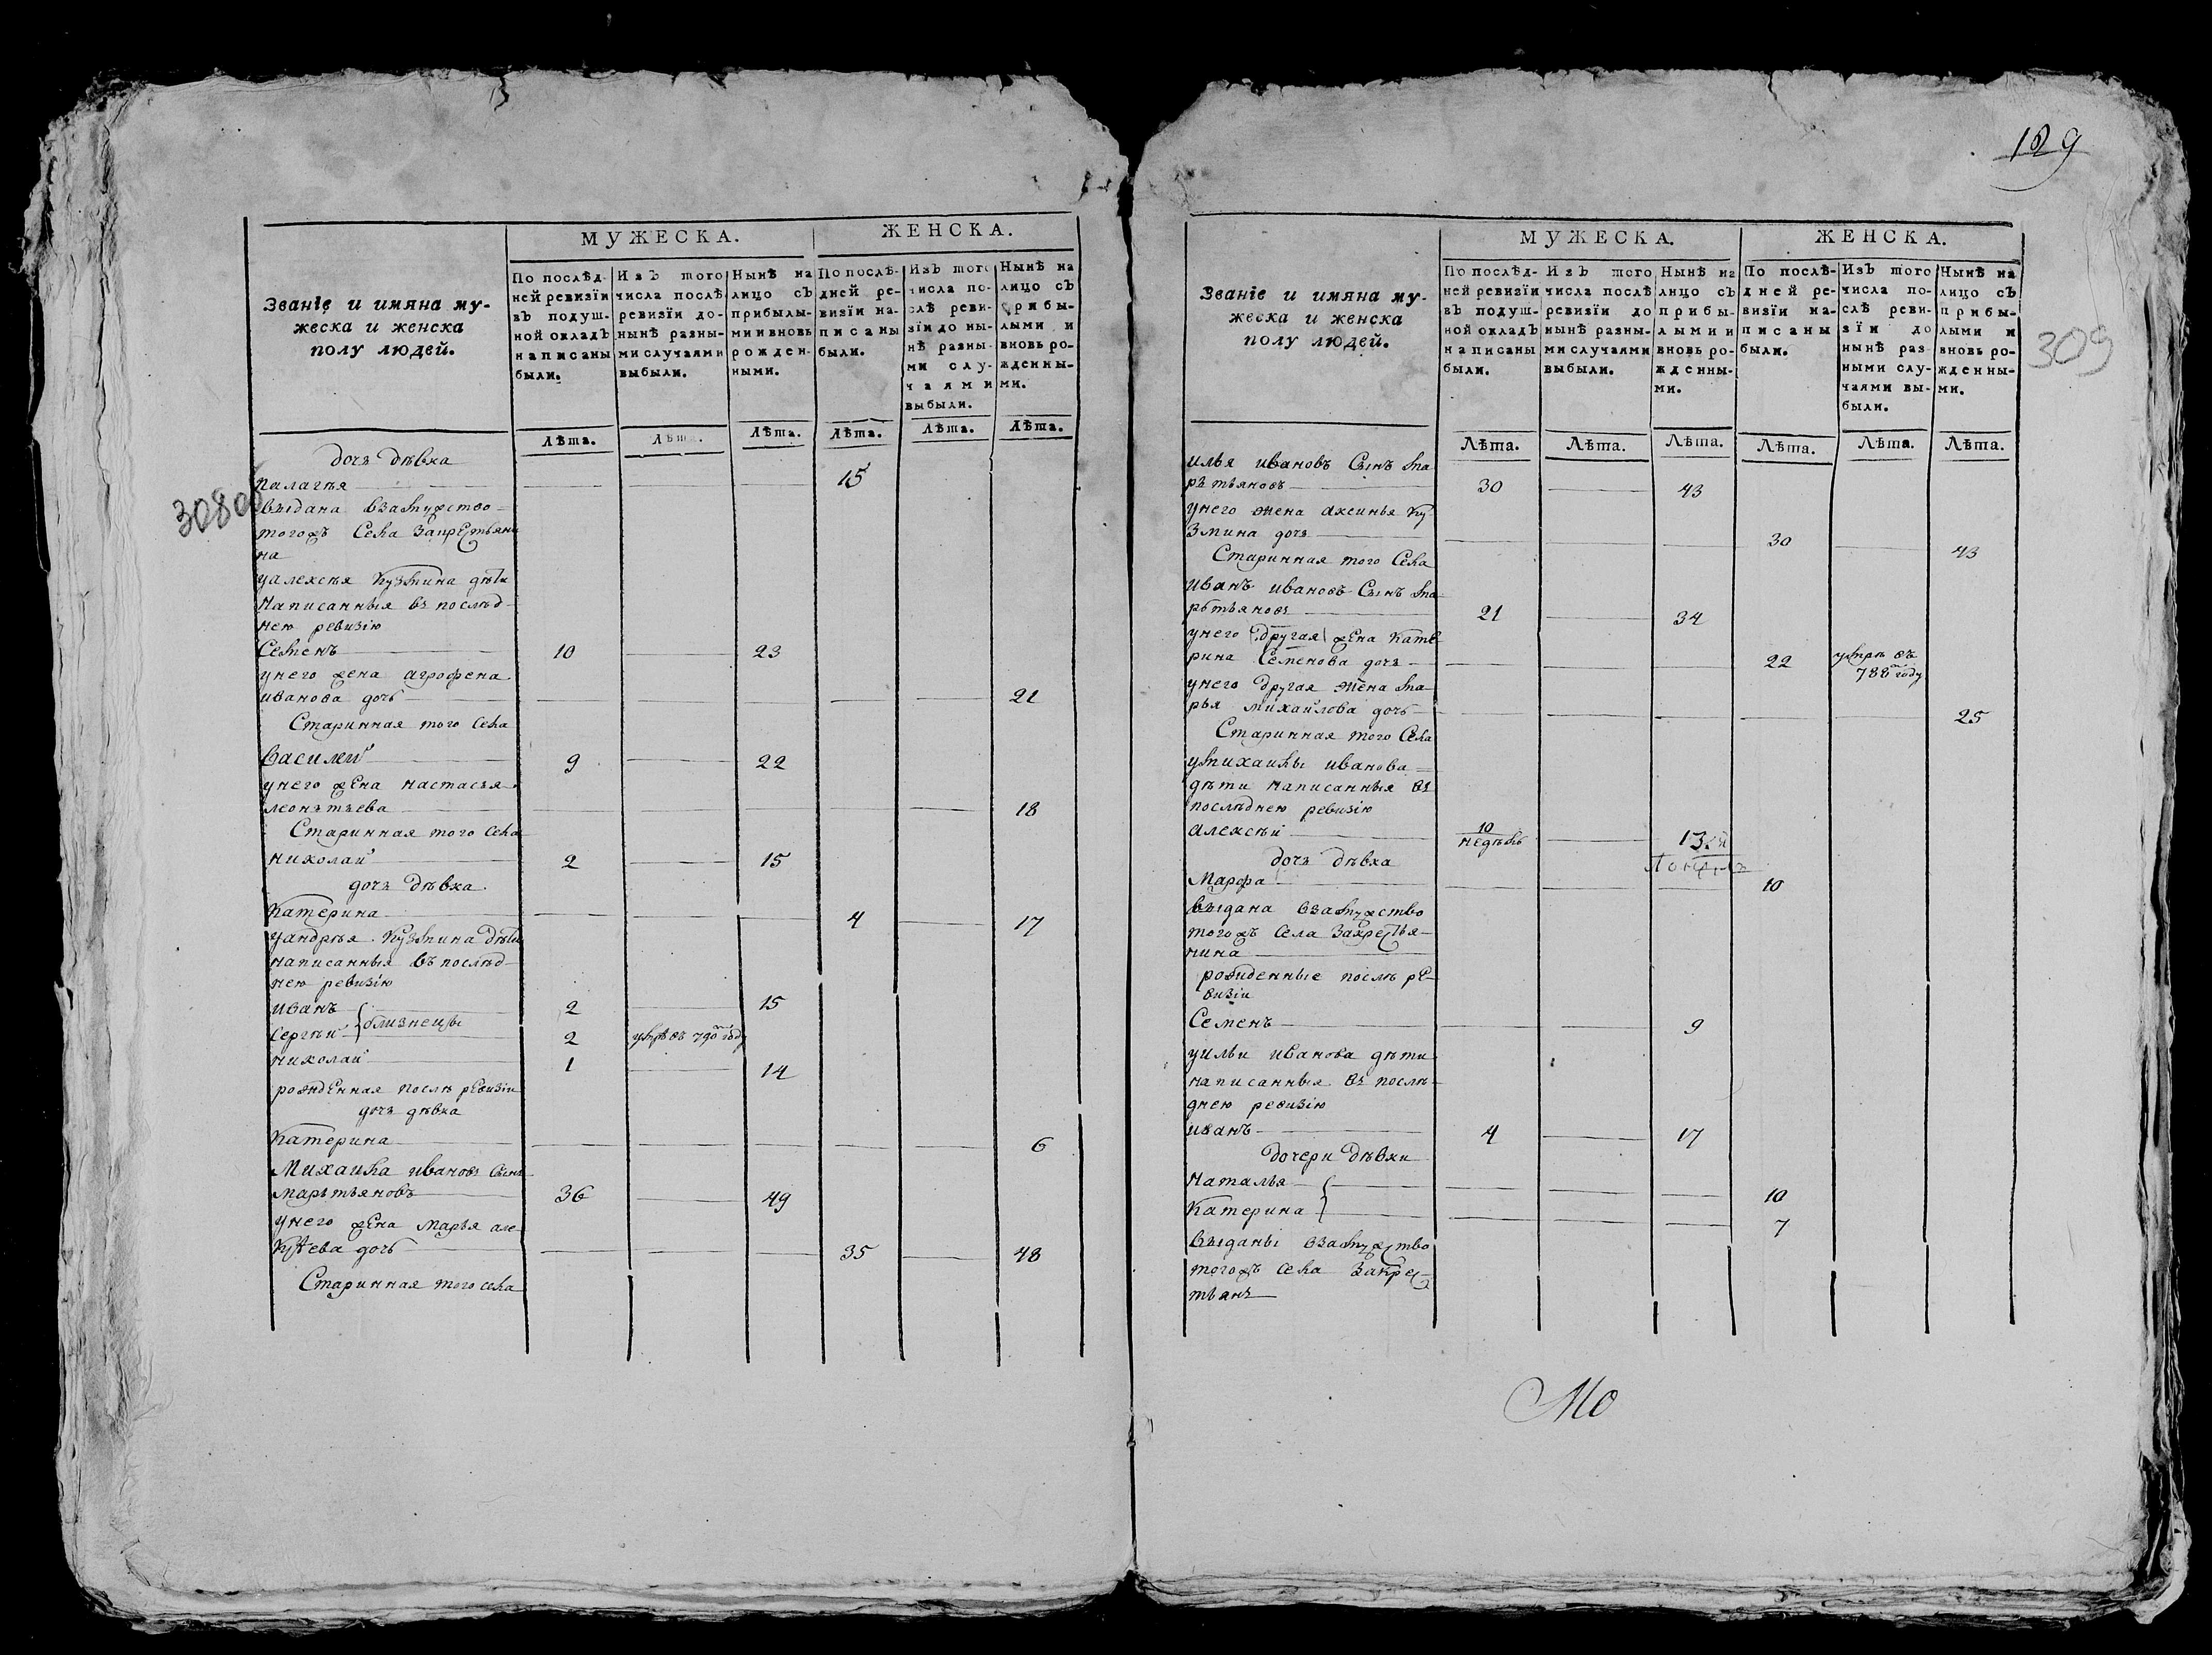 308 об
МУЖЕСКА. ЖЕНСКА.
Званіе и имяна мужеска и женска полу людей.
По послѣдней ревизіи въ подушной окладъ написаны были.
Изъ того числа послѣ ревизіи донынѣ разными случаями выбыли.
Нынѣ на лицо съ прибылыми и вновь рожденными.
По послѣдней ревизіи написаны были.
Изъ того числа послѣ ревизіи до нынѣ разными случаями выбыли.
Нынѣ на лицо съ прибылыми и вновь рожденными.
Лѣта. Лѣта. Лѣта. Лѣта. Лѣта. Лѣта.
дочь дѣвка
палагѣя 15
выдана взамужство
тогожъ села закрестьяни
на
уалексѣя кузмина дѣти
написанныя въ послѣд
нею ревизію
Семенъ 10 23
унего жена агрофена
иванова дочь 21
Старинная того села
василей 9 22
унего жена настасья
леонтьева 18
Старинная того села
николай 2 15
дочь дѣвка
катерина 4 17
уандрѣя кузмина дѣти
написанныя въ послѣд
нею ревизію
иванъ 2 15
близнецы
сергѣй 2 умре въ 790м году
николай 1 14
рожденная послѣ ревизіи
дочь дѣвка
катерина 6
Михайла ивановъ сынъ
мартьяновъ 36 49
унего жена марья але
ксѣева дочь 35 48
Старинная того села
129
309
МУЖЕСКА. ЖЕНСКА.
Званіе и имяна мужеска и женска полу людей.
По послѣдней ревизіи въ подушной окладъ написаны были.
Изъ того числа послѣ ревизіи до нынѣ разными случаями выбыли.
Нынѣ на лицо съ прибылыми и вновь рожденными.
По послѣдней ревизіи написаны были.
Изъ того числа послѣ ревизіи до нынѣ разными случаями выбыли.
Нынѣ на лицо съ прибылыми и вновь рожденными.
Лѣта. Лѣта. Лѣта. Лѣта. Лѣта. Лѣта.
илья ивановъ сынъ ма
рьтьяновъ 30 43
унего жена аксинья ку
змина дочь 30 43
Старинная того села
иванъ ивановъ сынъ ма
рьтьяновъ 21 34
унего другая жена кате
рина семенова дочь 22 умре въ 788м году
унего другая жена ма
рья михайлова дочь 25
Старинная того села
умихайлы иванова
дѣти написанныя въ
послѣднею ревизію
алексѣй 10 недѣль 13
дочь дѣвка
Марфа 10
выдана взамужство
тогожъ села закрестья
нина
рожденные послѣ ре
визіи
Семенъ 9
уильи иванова дѣти
написанныя въ послѣ
днею ревизію
иванъ 4 17
дочери дѣвки
наталья 10
катерина 7
выданы взамужство
тогожъ села закрес
тьянъ